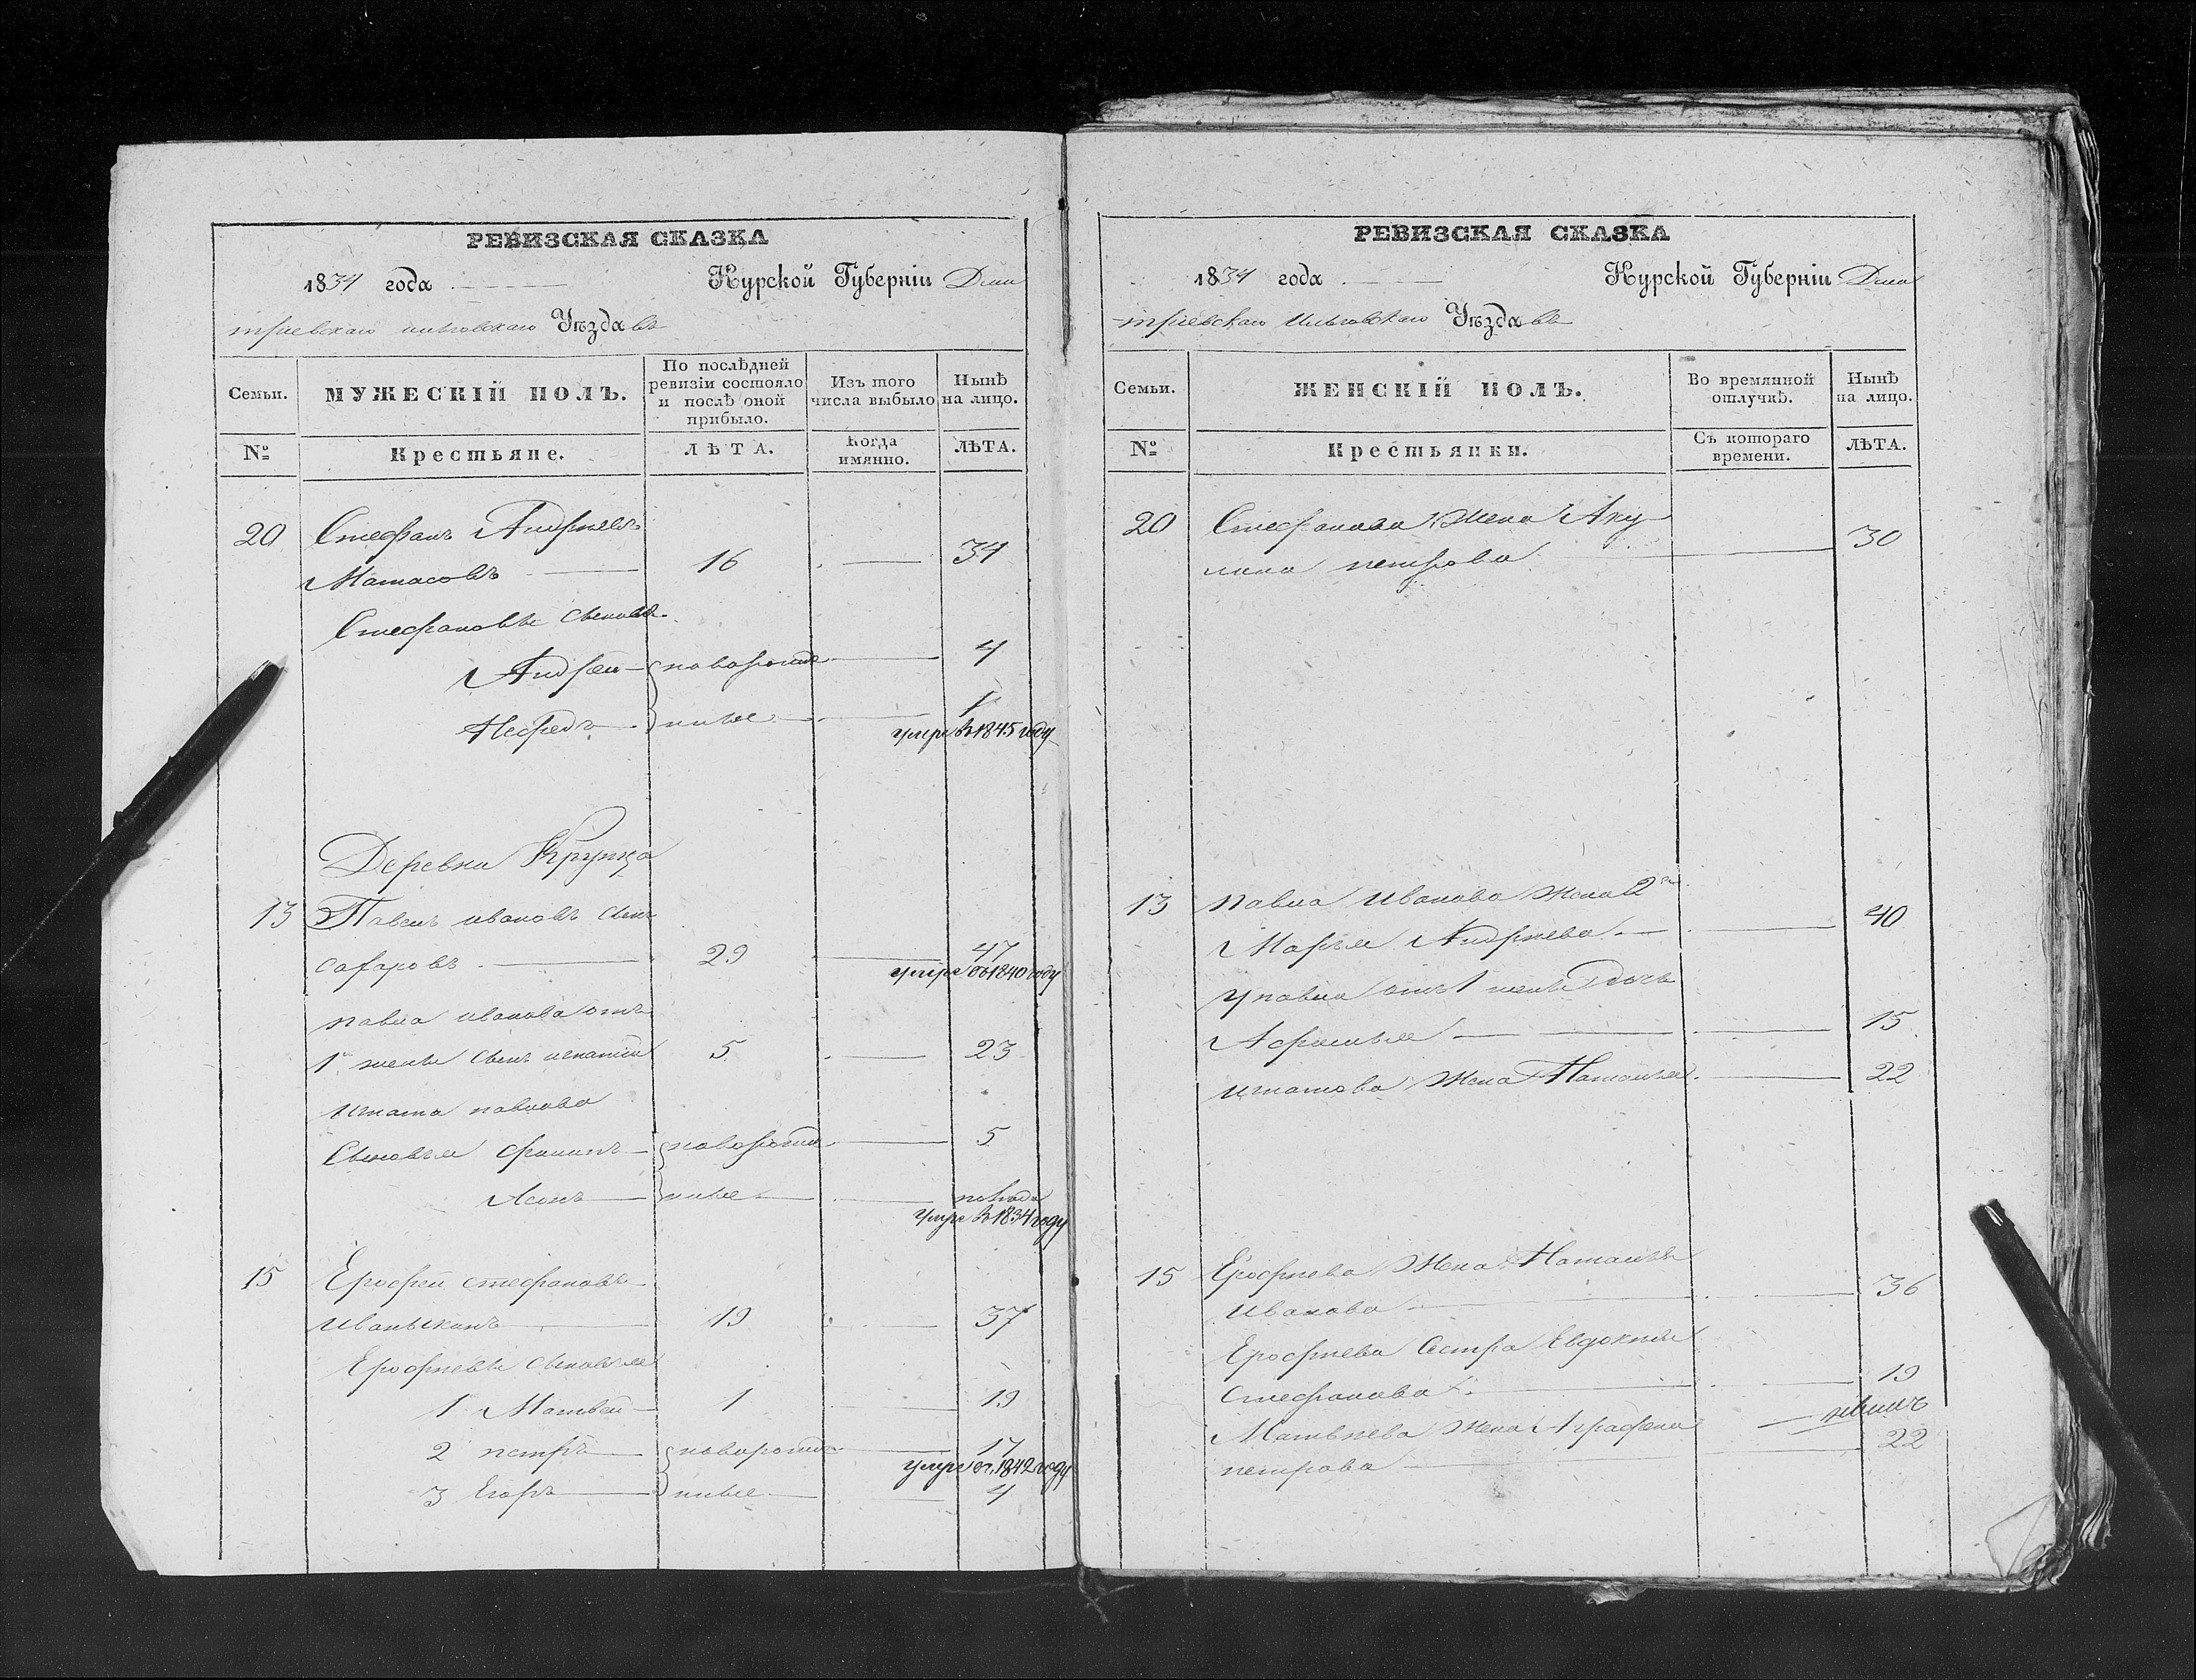 РЕВИЗСКАЯ СКАЗКА
1834 года Курской Губерніи Дми
тріевскаго на льговскаго Уѣздовъ
Семьи.
МУЖЕСКІЙ ПОЛЪ.
По послѣдней
ревизіи состояло
и послѣ оной
прибыло.
Изъ того
числа выбыло
Нынѣ
на лицо.
№
Крестьяне.
ЛѢТА.
Когда
имянно.
ЛѢТА.
20 Стефанъ Андреевъ
Матасовъ 16 34
Стефановы сыновья
Андрей новорожде 4
Нефедъ нные 1
умре въ 1845 году
Деревни Крупца
13 Павелъ ивановъ сынъ
сафаровъ 29 47
умре въ 1840 году
павла иванова отъ
1й жены сынъ игнатій 5 23
игната павлова
Сыновья филипъ новорожде 5
Асонъ нные полгода
умре въ 1834 году
15 Ерофей стефановъ
иванькинъ 19 37
Ерофеевы сыновья
1 Матвей 1 19
2 петръ новорожде 17
умре въ 1842 году
3 Егоръ нные 4
РЕВИЗСКАЯ СКАЗКА
1834 года Курской Губерніи Дми
тріевскаго льговскаго Уѣздовъ
Семьи.
ЖЕНСКІЙ ПОЛЪ.
Во времянной
отлучкѣ.
Нынѣ
на лицо.
№
Крестьянки.
Съ котораго
времени.
ЛѢТА.
20 Стефанова Жена Аку
лина петрова 30
13 павла Иванова жена 2я
Марья Андреева 40
У павла отъ 1 жены дочь
Афимья 15
игнатова Жена Наталья 22
15 Ерофеева Жена Наталья
Иванова 36
Ерофеева Сестра Евдокия
стефанова 19
Матвеева жена Аграфена
петрова 22